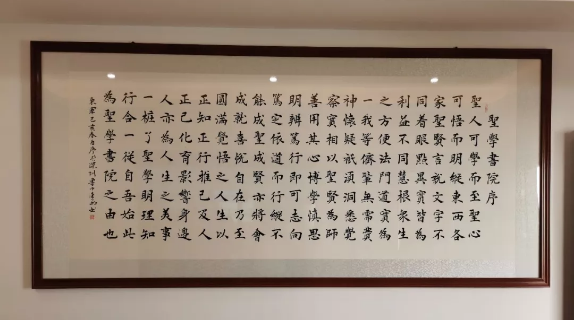 聖學書院序
聖人可學而至聖心
可悟而明縱東西各
家聖賢言說文字不
同着眼點異實皆為
利益不同慧根眾生
之方便法門道實為
一我等儕輩無需費
神懷疑祇須洞悉覺
察實相以聖賢為師
善用其心博學慎思
明辨篤行即可志向
篤定依道而行縱不
能成聖成賢亦將會
成就喜悅自在乃至
圓滿覺悟之人生以
正知正行推己及人
正己化育影響身邊
人亦為人生之美事
一樁了聖學明理知
行合一從自吾始此
為聖學書院之由也
己亥春月序於深圳書